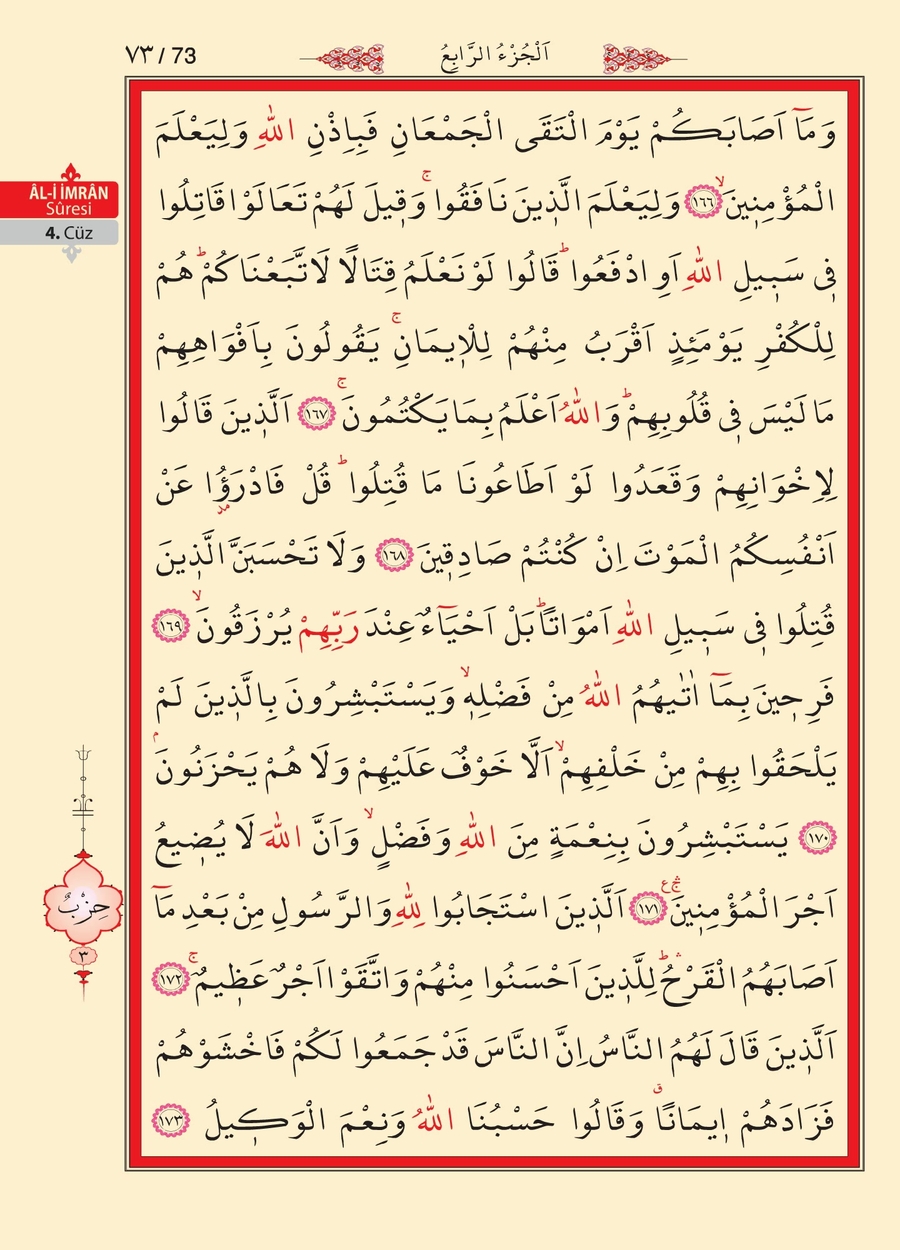 ٧٣ / 73
اَلْجُزْءُ الرَّابِعُ
ÂL-İ İMRÂN
Sûresi
4. Cüz
وَمَٓا اَصَابَكُمْ يَوْمَ الْتَقَى الْجَمْعَانِ فَبِاِذْنِ اللّٰهِ وَلِيَعْلَمَ
الْمُؤْمِن۪ينَۙ ﴿١٦٦﴾ وَلِيَعْلَمَ الَّذ۪ينَ نَافَقُواۚ وَق۪يلَ لَهُمْ تَعَالَوْا قَاتِلُوا
ف۪ي سَب۪يلِ اللّٰهِ اَوِ ادْفَعُواۜ قَالُوا لَوْ نَعْلَمُ قِتَالًا لَاتَّبَعْنَاكُمْۜ هُمْ
لِلْكُفْرِ يَوْمَئِذٍ اَقْرَبُ مِنْهُمْ لِلْا۪يمَانِۚ يَقُولُونَ بِاَفْوَاهِهِمْ
مَا لَيْسَ ف۪ي قُلُوبِهِمْۜ وَاللّٰهُ اَعْلَمُ بِمَا يَكْتُمُونَۚ ﴿١٦٧﴾ اَلَّذ۪ينَ قَالُوا
لِاِخْوَانِهِمْ وَقَعَدُوا لَوْ اَطَاعُونَا مَا قُتِلُواۜ قُلْ فَادْرَؤُ۫ا عَنْ
اَنْفُسِكُمُ الْمَوْتَ اِنْ كُنْتُمْ صَادِق۪ينَ ﴿١٦٨﴾ وَلَا تَحْسَبَنَّ الَّذ۪ينَ
قُتِلُوا ف۪ي سَب۪يلِ اللّٰهِ اَمْوَاتًاۜ بَلْ اَحْيَٓاءٌ عِنْدَ رَبِّهِمْ يُرْزَقُونَۙ ﴿١٦٩﴾
فَرِح۪ينَ بِمَٓا اٰتٰيهُمُ اللّٰهُ مِنْ فَضْلِه۪ۙ وَيَسْتَبْشِرُونَ بِالَّذ۪ينَ لَمْ
يَلْحَقُوا بِهِمْ مِنْ خَلْفِهِمْۙ اَلَّا خَوْفٌ عَلَيْهِمْ وَلَا هُمْ يَحْزَنُونَۢ
﴿١٧٠﴾ يَسْتَبْشِرُونَ بِنِعْمَةٍ مِنَ اللّٰهِ وَفَضْلٍۙ وَاَنَّ اللّٰهَ لَا يُض۪يعُ
اَجْرَ الْمُؤْمِن۪ينَۚۛ ع ﴿١٧١﴾ اَلَّذ۪ينَ اسْتَجَابُوا لِلّٰهِ وَالرَّسُولِ مِنْ بَعْدِ مَٓا
اَصَابَهُمُ الْقَرْحُۜۛ لِلَّذ۪ينَ اَحْسَنُوا مِنْهُمْ وَاتَّقَوْا اَجْرٌ عَظ۪يمٌۚ ﴿١٧٢﴾
اَلَّذ۪ينَ قَالَ لَهُمُ النَّاسُ اِنَّ النَّاسَ قَدْ جَمَعُوا لَكُمْ فَاخْشَوْهُمْ
فَزَادَهُمْ ا۪يمَانًاۗ وَقَالُوا حَسْبُنَا اللّٰهُ وَنِعْمَ الْوَك۪يلُ ﴿١٧٣﴾
حِزْبٌ
٣